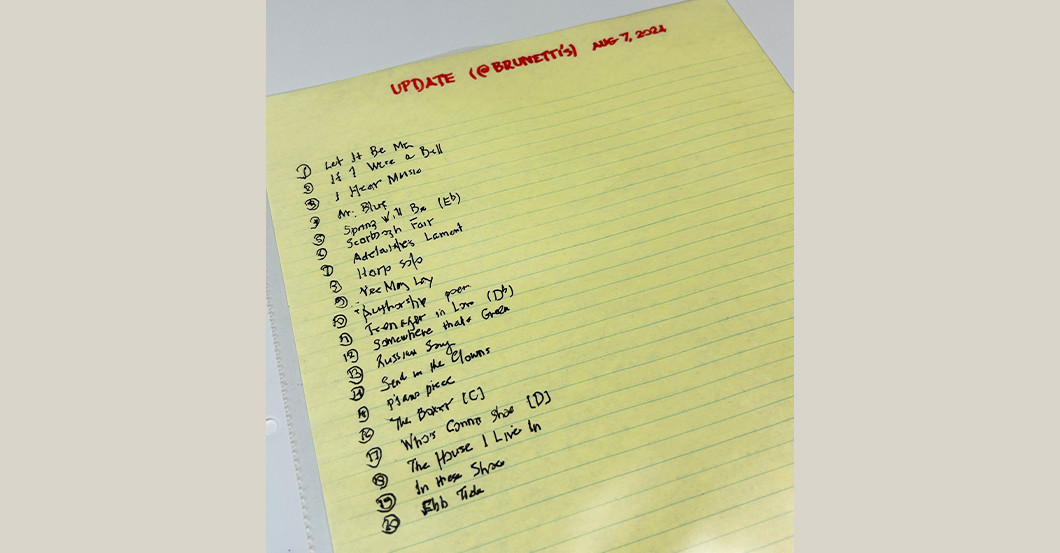 UPDATE (@BRUNETTI'S) AUG 7, 2024
1 Let It Be Me
2 If I Were a Bell
3 I Hear Music
4 Mr. Blue
5 Spring Will Be (Eb)
6 Scarborgh Fair
7 Adelaide's Lament
8 Harp solo
9 May Lay
10 Authorship poem
11 Teenager in Love (Db)
12 Somewhere that's Green
13 Russian Song
14 Send in the Clowns
15 Piano piece
16 The Boxer [C]
17 Who's Gonna Shoe [D]
18 The House I Live In
19 In these Shoes
20 Ebb Tide